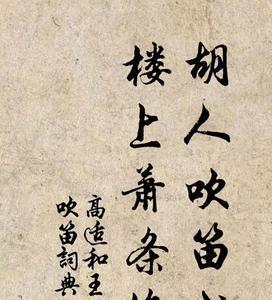 胡人吹笛
楼上萧条
高适和王
吹笛词典